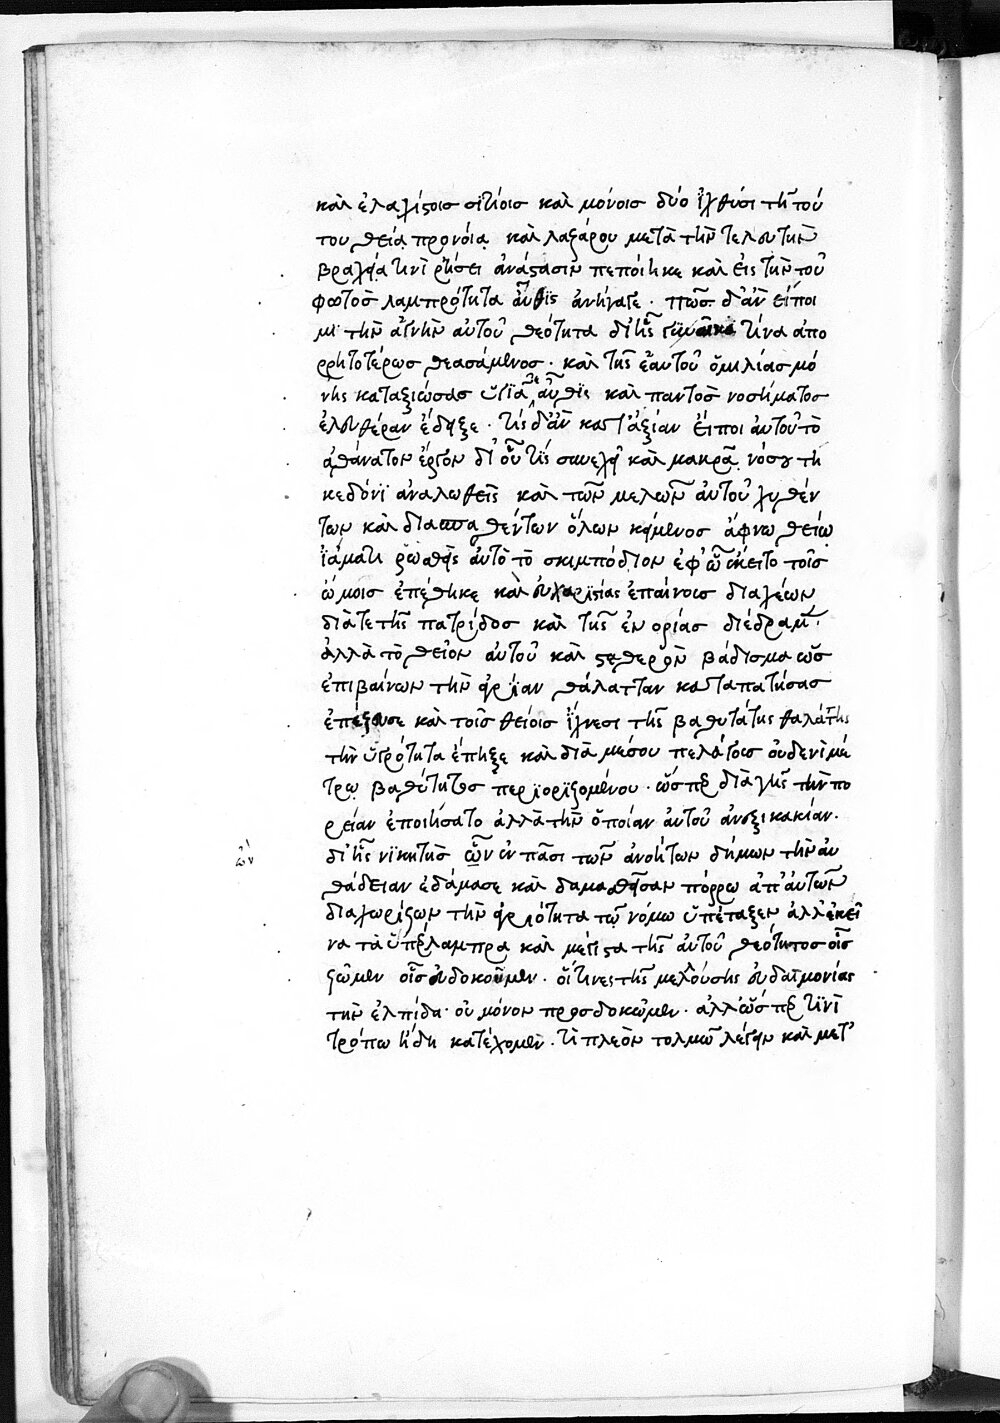 καὶ ἐλαχίστοις σιτίοις καὶ μόνοις δύο ἰχθύσι τῆ τού
του θεία προνοία καὶ λαζάρου μετὰ τὴν τελευτὴν
βραχεία τινὶ ῥήσει ἀνάστασιν πεποίηκε καὶ εἰς τὴν τοῦ
φωτὸς λαμπρότητα αὖθϊς ἀνήγαγε. πῶς δ' ἂν εἴποι
μι τὴν ἁγνὴν αὐτοῦ θεότητα δι' ἧς γϋναῖκά τίνα ἀπο
ρρητοτέρως θεασάμενος. καὶ τῆς ἑαυτοῦ ὁμιλίας μό
νης καταξιώσας ὑγϊᾶ τε αὖθϊς καὶ παντὸς νοσήματος
ἐλευθέραν ἔδειξε. τίς δ' ἂν κατ' ἀξίαν εἴποι αὐτοῦ τὸ
ἀθάνατον ἔργον δι' οὗ τῒς συνεχεῖ καὶ μακρᾶ νόσου τη
κεδόνϊ ἀναλωθεὶς καὶ τῶν μελῶν αὐτοῦ λυθέν
των καὶ διασπασθέντων ὅλων κείμενος ἄφνω θείω
ἰάματι ῥωσθεὶς αὐτὸ τὸ σκιμπόδιον ἐφ' ὧ ἔκειτο τοῖς
ὤμοις ἐπέθηκε καὶ εὐχαρϊστίας ἐπαίνοις διαχέων
διά τε τῆς πατρίδος καὶ τῆς ἐνορίας διέδραμεν.
ἀλλὰ τὸ θεῖον αὐτοῦ καὶ στεθερὸν βάδισμα ὡς
ἐπιβαίνων τὴν ἀγρίαν θάλατταν καταπατήσας
ἐπέζευσε καὶ τοῖς θείοις ἴχνεσι τῆς βαθυτάτης θαλάττης
τὴν ὑγρότητα ἔπηξε καὶ διὰ μέσου πελάγους οὐδενὶ μέ
τρω βαθύτητος περϊορϊζομένου. ὥσπερ διὰ γῆς τὴν πο
ρείαν ἐποιήσατο ἀλλὰ τὴν ὁποίαν αὐτοῦ ἀνεξικακίαν.
δι' ἧς νϊκητὴς ὢν ἐν πᾶσι τῶν ἀνοήτων δήμων τὴν αὐ
θάδειαν ἐδάμασε καὶ δαμασθεῖσαν πόρρω ἀπ' αὐτῶν
διαχωρίζων τὴν ἀγριότητα τῶ νόμω ὑπέταξεν ἀλλ' ἐκεῖ
να τὰ ὑπέρλαμπρα καὶ μέγιστα τῆς αὐτοῦ θεότητος οἷς
ζῶμεν οἷς εὐδοκοῦμεν. οἵτινες τῆς μελλούσης εὐδαϊμονίας
τὴν ἐλπίδα. οὐ μόνον προσδοκῶμεν. ἀλλ' ὥσπερ τϊνὶ
τρόπω ἤδη κατέχομεν. τί πλεὸν τολμῶ λέγειν καὶ μετ'
ὢν